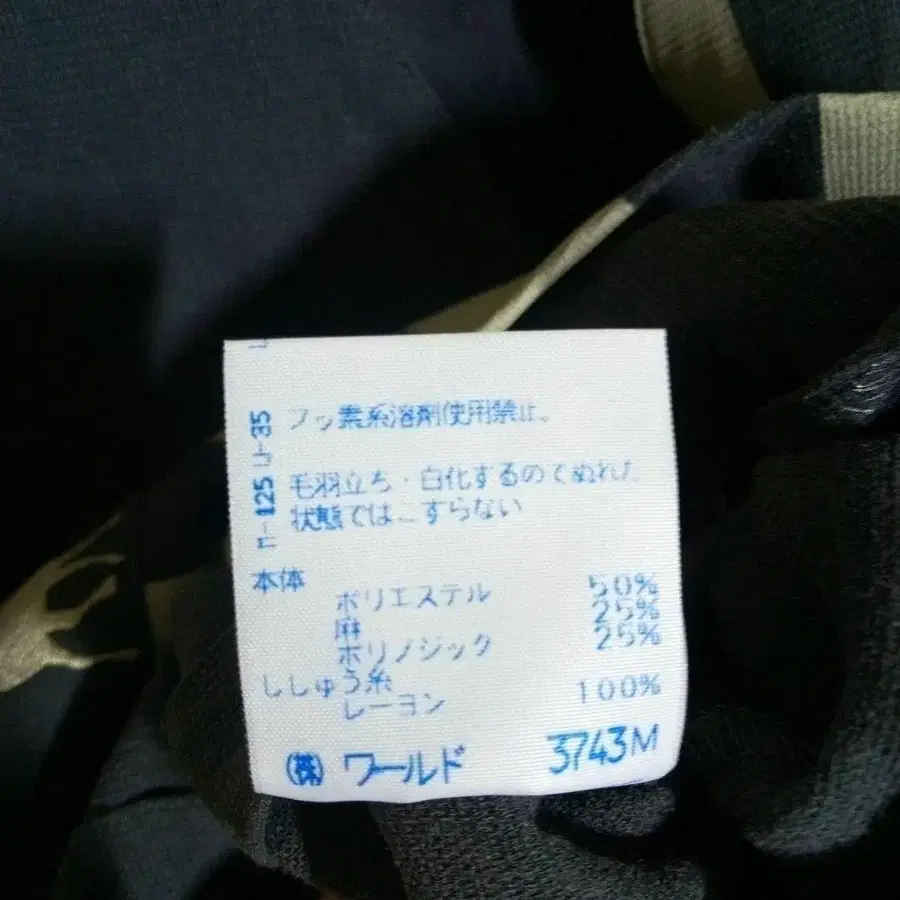 フッ素系溶剤使用禁止。
毛羽立ち・白化するのでぬれた
状態ではこすらない
本体
ポリエステル 50%
麻 25%
ポリノジック 25%
ししゅう糸
レーヨン 100%
(株) ワールド 3743M